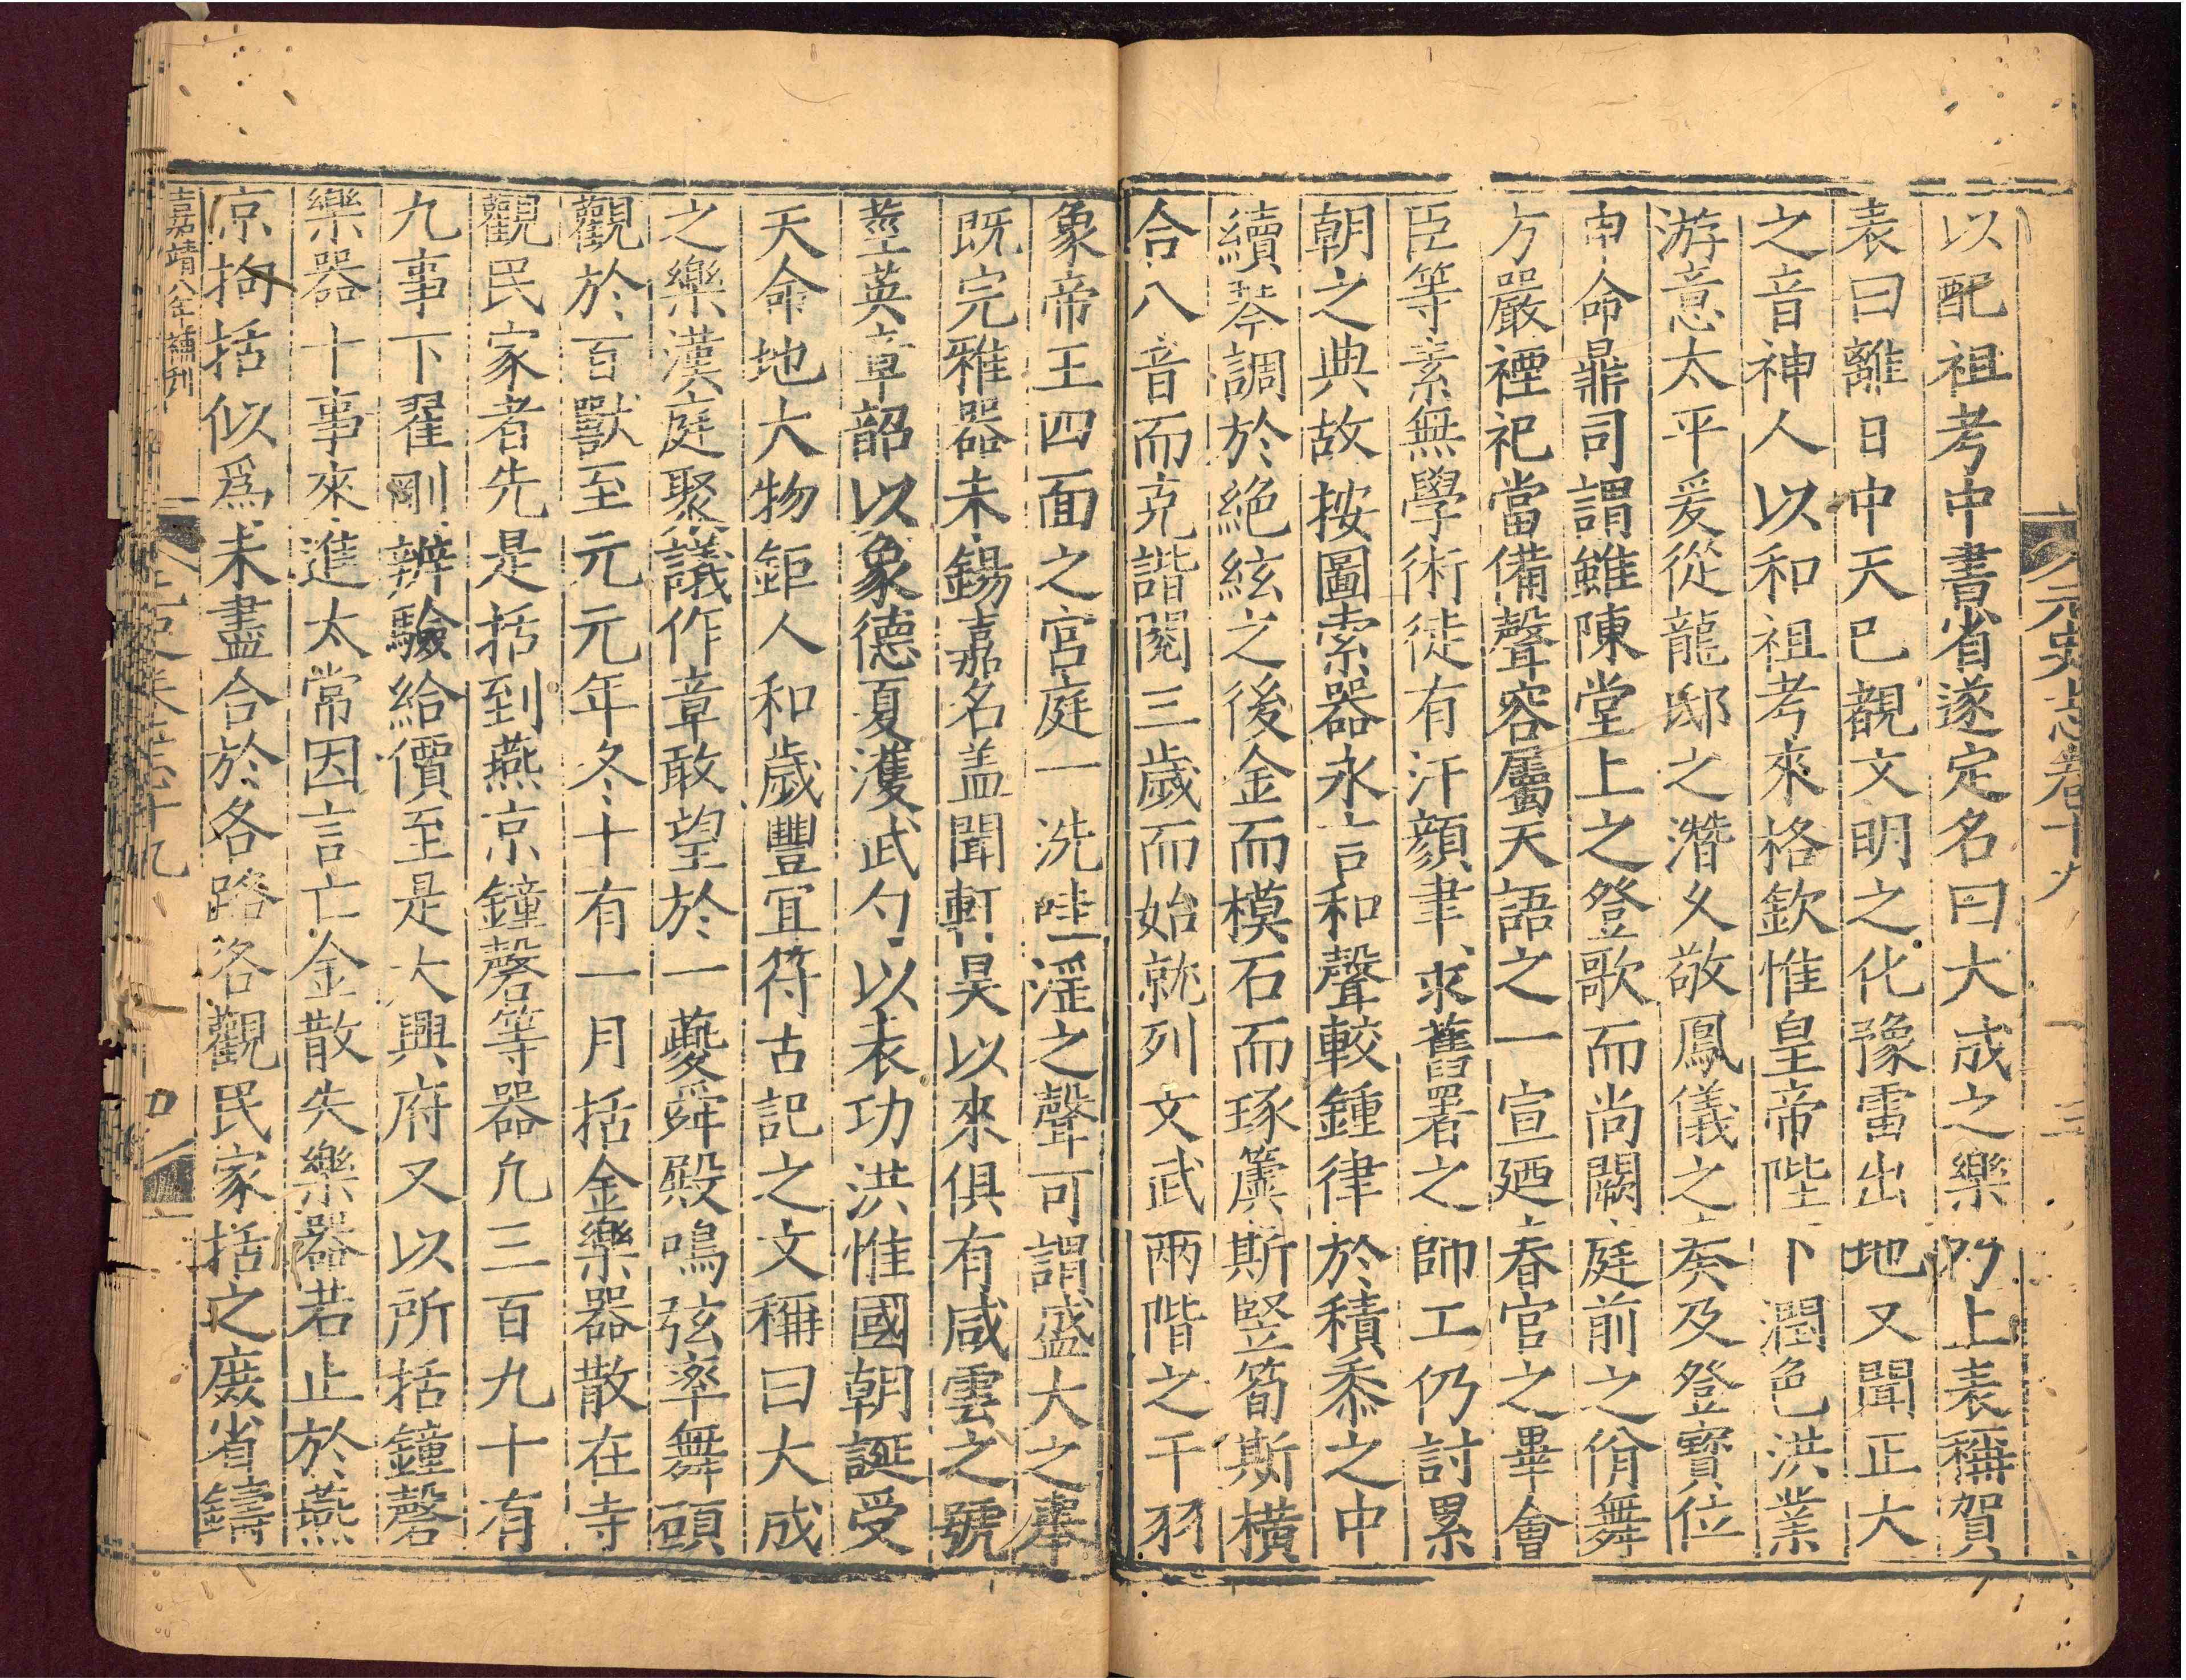 元史志卷十九
三
以配祖考中書省遂定名曰大成之樂乃上表稱賀
表曰離日中天已觀文明之化豫雷出地又聞正大
之音神人以和祖考來格欽惟皇帝陛下潤色洪業
游意太平爰從龍邸之潛久敬鳳儀之奏及登寶位
申命鼎司謂雖陳堂上之登歌而尚闕庭前之佾舞
方嚴禋祀當備聲容屬天語之一宣廼春官之畢會
臣等素無學術徒有汗顔聿求舊署之師工仍討累
朝之典故按圖索器永言和聲較鍾律於積黍之中
續琴調於絶絃之後金而模石而琢簴斯竪筍斯橫
合八音而克諧閱三歲而始就列文武兩階之干羽
象帝王四面之宮庭一洗哇淫之聲可謂盛大之舉
既完雅器未錫嘉名盖聞軒昊以來俱有咸雲之號
莖英章韶以象德夏濩武勺以表功洪惟國朝誕受
天命地大物鉅人和歲豐宜符古記之文稱曰大成
之樂漢庭聚議作章敢望於一夔舜殿鳴弦率舞碩
觀於百獸至元元年冬十有一月括金樂器散在寺
觀民家者先是括到燕京鐘磬等器凡三百九十有
九事下翟剛辨驗給價至是大興府又以所括鐘磬
樂器十事來進太常因言亡金散失樂器若止於燕
京拘括似爲未盡合於各路各觀民家括之庶省鑄
嘉靖八年補刊